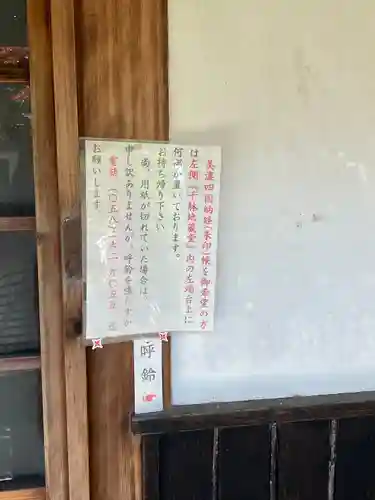 美濃四国納経（朱印）帳を御希望の方
は左側『千躰地蔵堂』内の左端台上に
何派か置いております。
お持ち帰り下さい。
尚、用紙が切れていた場合は、
申し訳ありませんが、呼鈴を鳴らすか
電話
迄
お願いします。
呼鈴